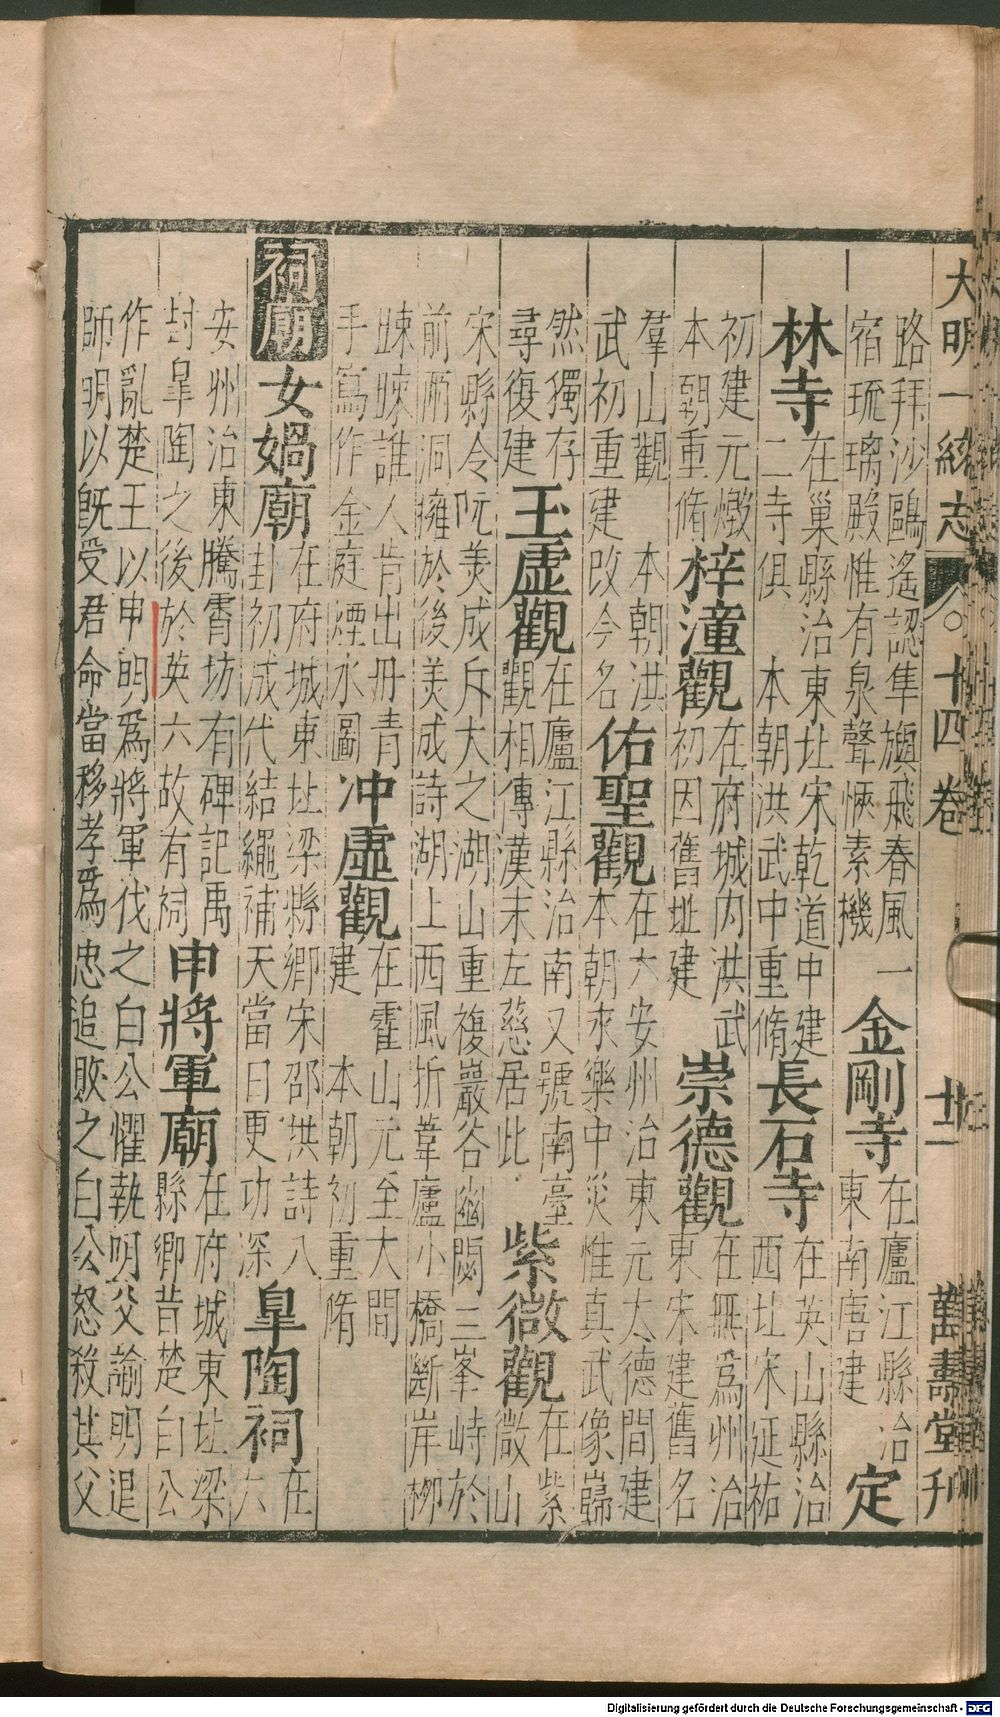 大明一統志 十四卷 廿一 萬壽堂刋
路拜沙鷗遙認隼旟飛春風一
宿琉璃殿惟有泉聲愜素機
金剛寺
在廬江縣治
東南唐建
定
林寺
在巢縣治東北宋乾道中建
二寺俱 本朝洪武中重脩
長石寺
在英山縣治
西北宋延祐
初建元燬
本朝重脩
梓潼觀
在府城内洪武
初因舊址建
崇德觀
在無爲州治
東宋建舊名
羣山觀 本朝洪
武初重建改今名
佑聖觀
在六安州治東元大德間建
本朝永樂中災惟真武像巋
然獨存
尋復建
玉虛觀
在廬江縣治南又號南臺
觀相傳漢末左慈居此
紫微觀
在紫
微山
宋縣令阮美成斥大之湖山重複巖谷幽閟三峯峙於
前兩洞擁於後美成詩湖上西風折葦廬小橋斷岸柳
踈踈誰人肯出冊青
手寫作金庭煙水圖
冲虛觀
在霍山元至大間
建 本朝初重脩
祠廟
女媧廟
在府城東北梁縣鄉宋邵拱詩八
卦初成代結繩補天當日更功深
臯陶祠
在
六
安州治東騰霄坊有碑記禹
封臯陶之後於英六故有祠
申將軍廟
在府城東北梁
縣鄉昔楚白公
作亂楚王以申明爲將軍伐之白公懼執明父諭明退
師明以旣受君命當移孝爲忠追敗之白公怒殺其父
Digitalisierung gefördert durch die Deutsche Forschungsgemeinschaft - DFG